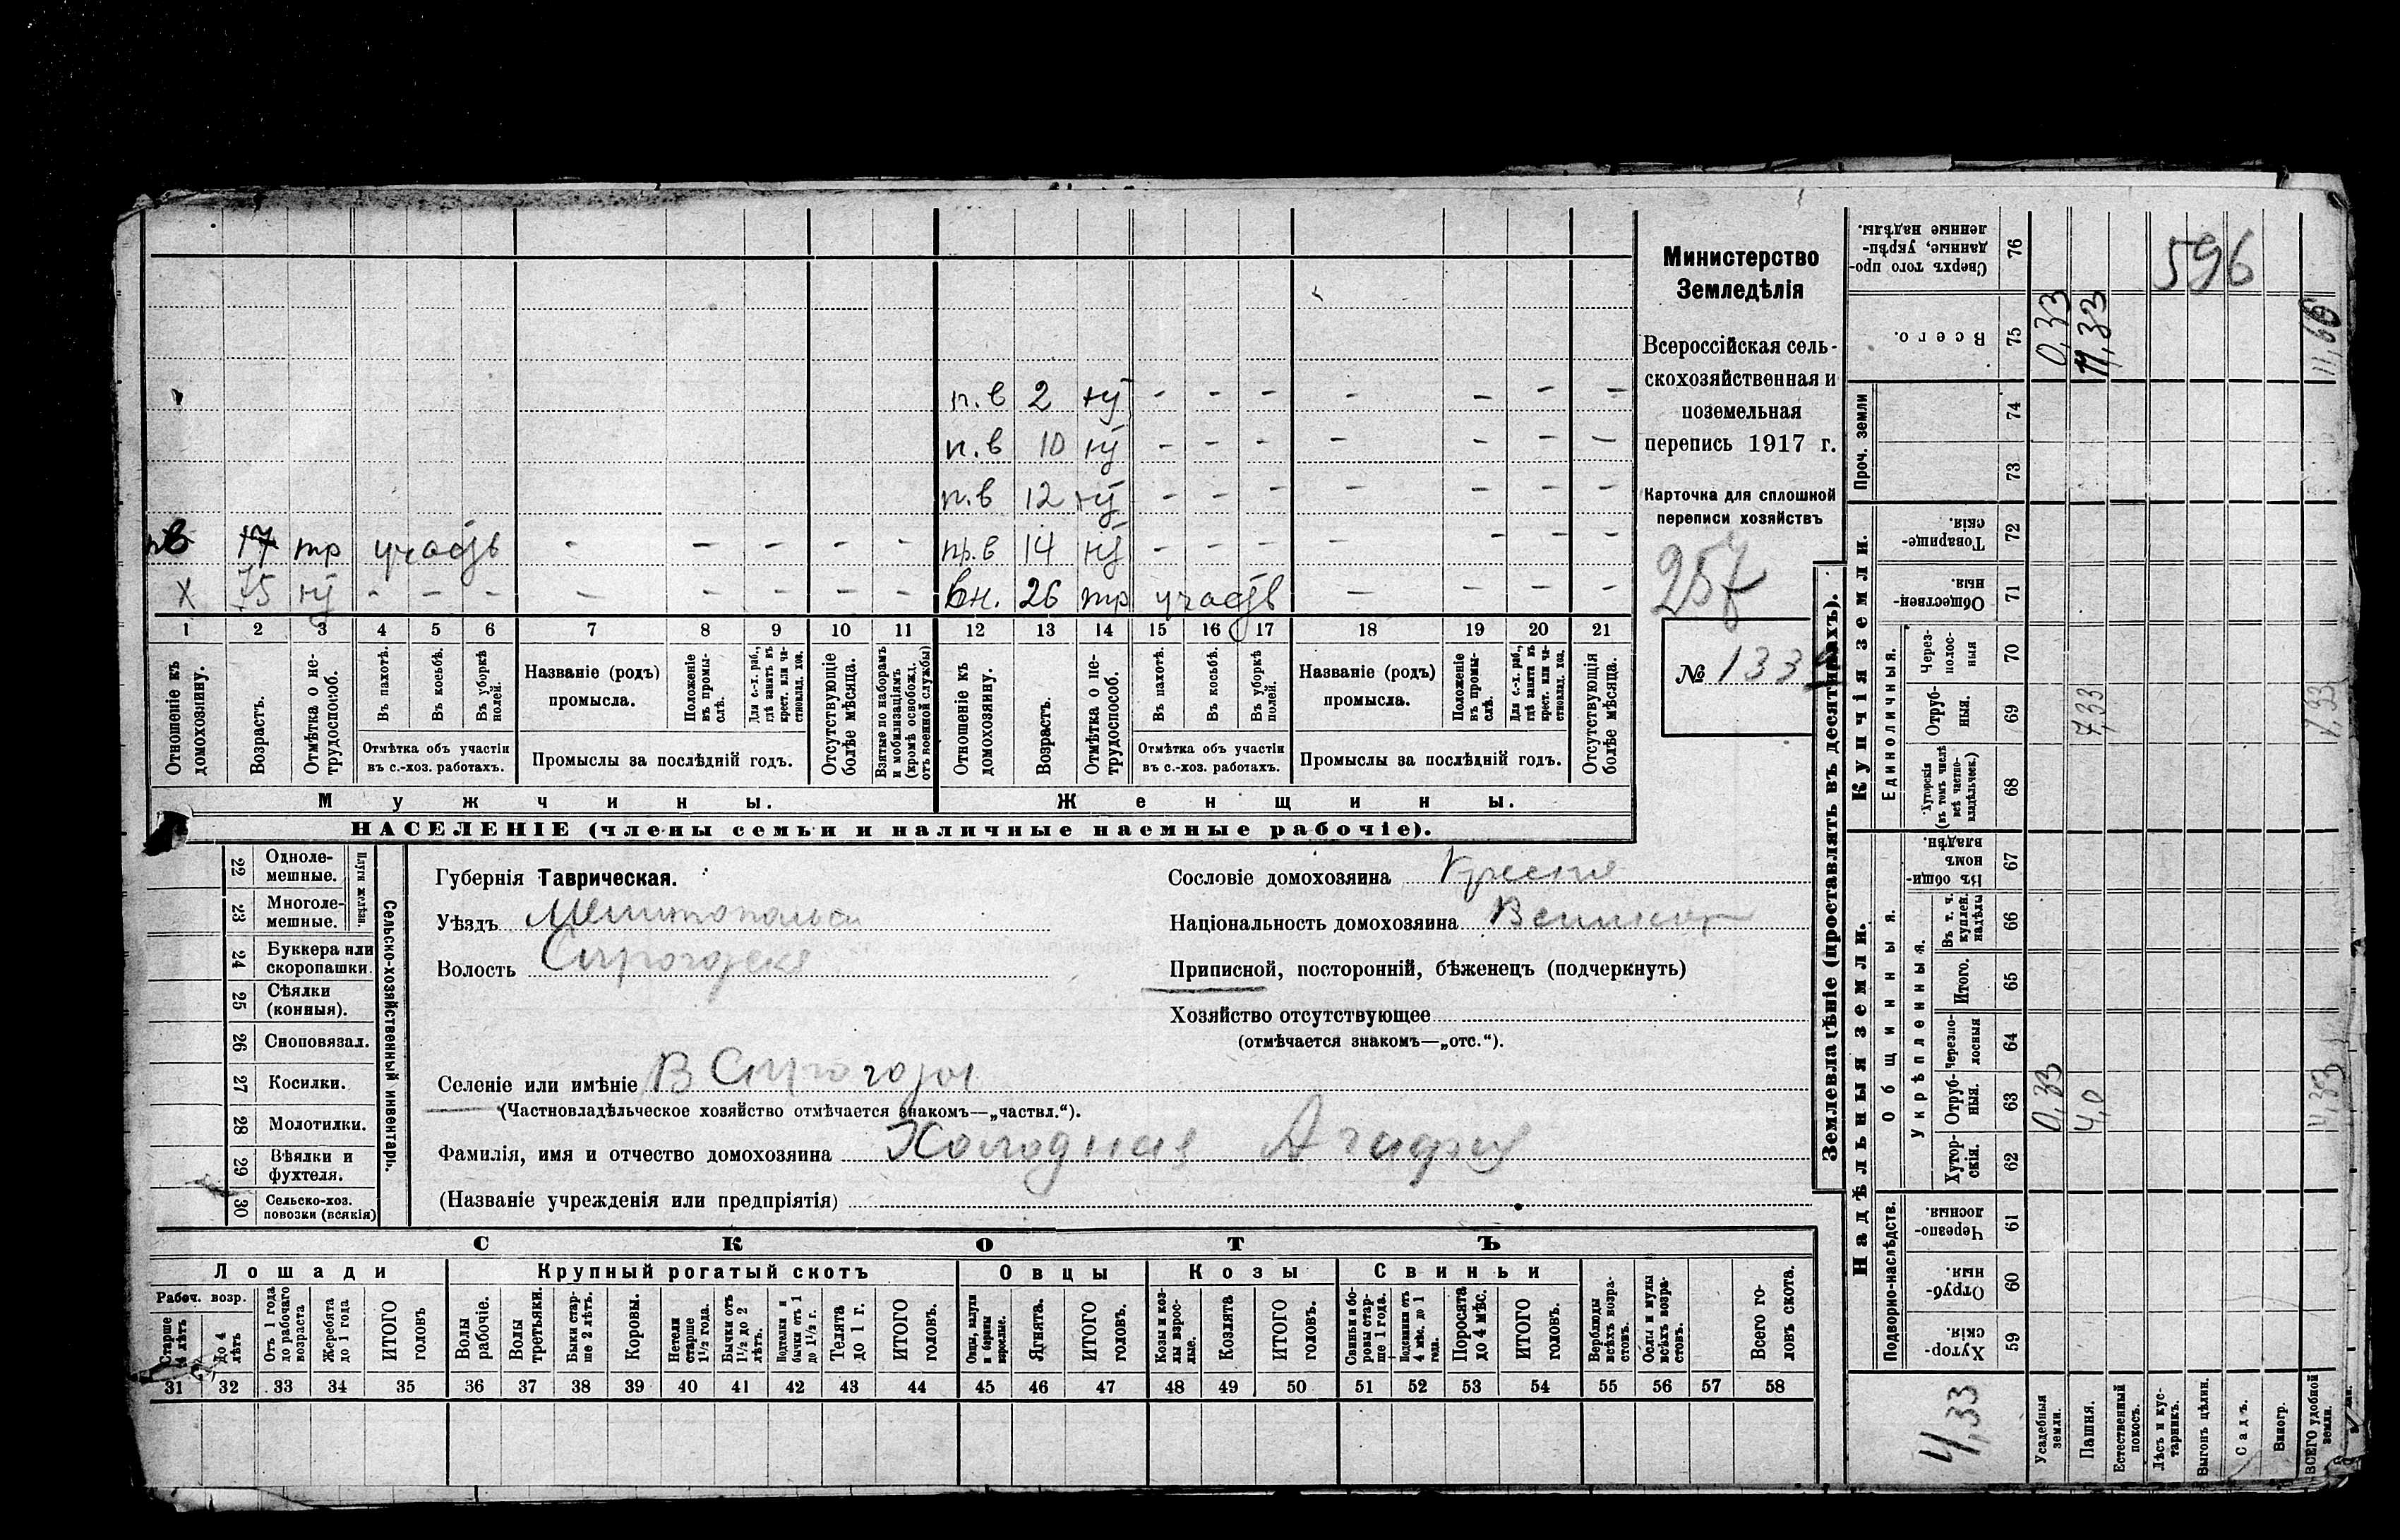 Министерство
Земледѣлія
Всероссійская сель-
скохозяйственная и
поземельная
перепись 1917 г.
Карточка для сплошной
переписи хозяйствъ
257
№ 133
п.в 2 - - - - - - -
п.в 10 - - - - - - -
п.в 12 - - - - - - -
17 тр участв - - - - - пр.в 14 - - - - - - -
Х 75 - - - - - - - - вн. 26 тр участв - - - -
1 2 3 4 5 6 7 8 9 10 11 12 13 14 15 16 17 18 19 20 21
Отношеніе къ домохозяину.
Возрастъ.
Отмѣтка о не-трудоспособ.
Въ пахотѣ.
Въ косьбѣ.
Въ уборкѣ полей.
Отмѣтка объ участіи
въ с.-хоз. работахъ.
Названіе (родъ)
промысла.
Положеніе въ промы-слѣ.
Для с.-х. раб., гдѣ занятъ въ крест. или ча-стновлад. хоз.
Промыслы за послѣдній годъ.
Отсутствующіе болѣе мѣсяца.
Взятые по наборамъ и мобилизаціямъ (кромѣ освобожд. отъ военной службы)
Отношеніе къ домохозяину.
Возрастъ.
Отмѣтка о не-трудоспособ.
Въ пахотѣ.
Въ косьбѣ.
Въ уборкѣ полей.
Отмѣтка объ участіи
въ с.-хоз. работахъ.
Названіе (родъ)
промысла.
Положеніе въ промы-слѣ.
Для с.-х. раб., гдѣ занята въ крест. или ча-стновлад. хоз.
Промыслы за послѣдній годъ.
Отсутствующія болѣе мѣсяца.
Мужчины. Женщины.
НАСЕЛЕНІЕ (члены семьи и наличные наемные рабочіе).
Сельско-хозяйственный инвентарь.
Плуги желѣзн.
22 Одноле-мешные.
23 Многоле-мешные.
24 Буккера или скоропашки.
25 Сѣялки (конныя).
26 Сноповязал.
27 Косилки.
28 Молотилки.
29 Вѣялки и фухтеля.
30 Сельско-хоз. повозки (всякія)
Губернія Таврическая.
Уѣздъ Мелитопольск
Волость Сирогозск
Сословіе домохозяина Крестя
Національность домохозяина Великор
Приписной, посторонній, бѣженецъ (подчеркнуть)
Хозяйство отсутствующее
(отмѣчается знакомъ—„отс.“).
Селеніе или имѣніе В Сирогозы
(Частновладѣльческое хозяйство отмѣчается знакомъ—„частвл.“).
Фамилія, имя и отчество домохозяина Холодная Агафия
(Названіе учрежденія или предпріятія)
СКОТЪ
Лошади Крупный рогатый скотъ Овцы Козы Свиньи
Рабоч. возр.
Старше 4 лѣтъ
До 4 лѣтъ
Отъ 1 года до рабочаго возраста
Жеребята до 1 года
ИТОГО головъ
Волы рабочіе.
Волы третьяки.
Быки стар-ше 2 лѣтъ.
Коровы.
Нетели старше 1½ года.
Бычки отъ 1½ до 2 лѣтъ.
Подтелки и бычки отъ 1 до 1½ г.
Телята до 1 г.
ИТОГО головъ.
Овцы, валухи и бараны взрослые.
Ягнята.
ИТОГО головъ.
Козы и коз-лы взрос-лые.
Козлята
ИТОГО головъ.
Свиньи и бо-ровы стар-ше 1 года.
Подсвинки отъ 4 мѣс. до 1 года.
Поросята до 4 мѣс.
ИТОГО головъ.
Верблюды всѣхъ возра-стовъ.
Ослы и мулы всѣхъ возра-стовъ.
Всего го-ловъ скота.
31 32 33 34 35 36 37 38 39 40 41 42 43 44 45 46 47 48 49 50 51 52 53 54 55 56 57 58
Землевладѣніе (проставлять въ десятинахъ).
Надѣльныя земли. Купчія земли. Проч. земли
Подворно-наслѣдств.
Общинныя.
Укрѣпленныя.
Единоличныя.
Хутор-скія. 59
Отруб-ныя. 60
Черезпо-лосныя. 61
Хутор-скія. 62
Отруб-ныя. 63 0,33 4,0 4,33
Черезпо-лосныя 64
Итого. 65
Въ т. ч. куплен. надѣлы 66
Въ общин-номъ владѣн. 67
Хуторскія (въ томъ числѣ всѣ частно-владѣльческ.) 68
Отруб-ныя. 69 7,33 7,33
Через-полос-ныя 70
Обществен-ныя. 71
Товарище-скія. 72
73
74
Всего. 75 0,33 11,33 11,66
Сверхъ того про-данные, укрѣп-ленные надѣлы. 76
596
4,33
Усадебныя земли.
Пашня.
Естественный покосъ.
Лѣсъ и кус-тарникъ.
Выгонъ цѣлин.
Садъ.
Виногр.
ВСЕГО удобной земли.